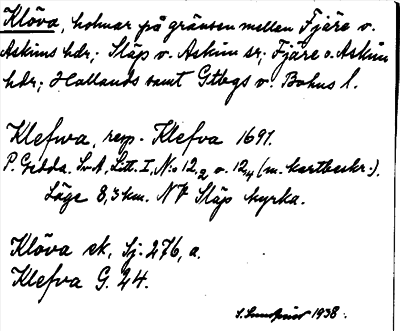 Klöva, holmar på gränsen mellan Fjäre o.
Askims hdr; Släp o. Askim sr; Fjäre o. Askim
hdr; Hallands samt Gtbgs o. Bohus l.
Klefwa, resp. Klefva 1691.
P. Gedda. SvA, Litt. I, N:o 12,2 o. 12,4 (m. kartbeskr.).
Läge 8,3 km. NV Släp kyrka.
Klöva ek, Sj. 276, a.
Klefva G. 24.
S. Lundqvist 1938.